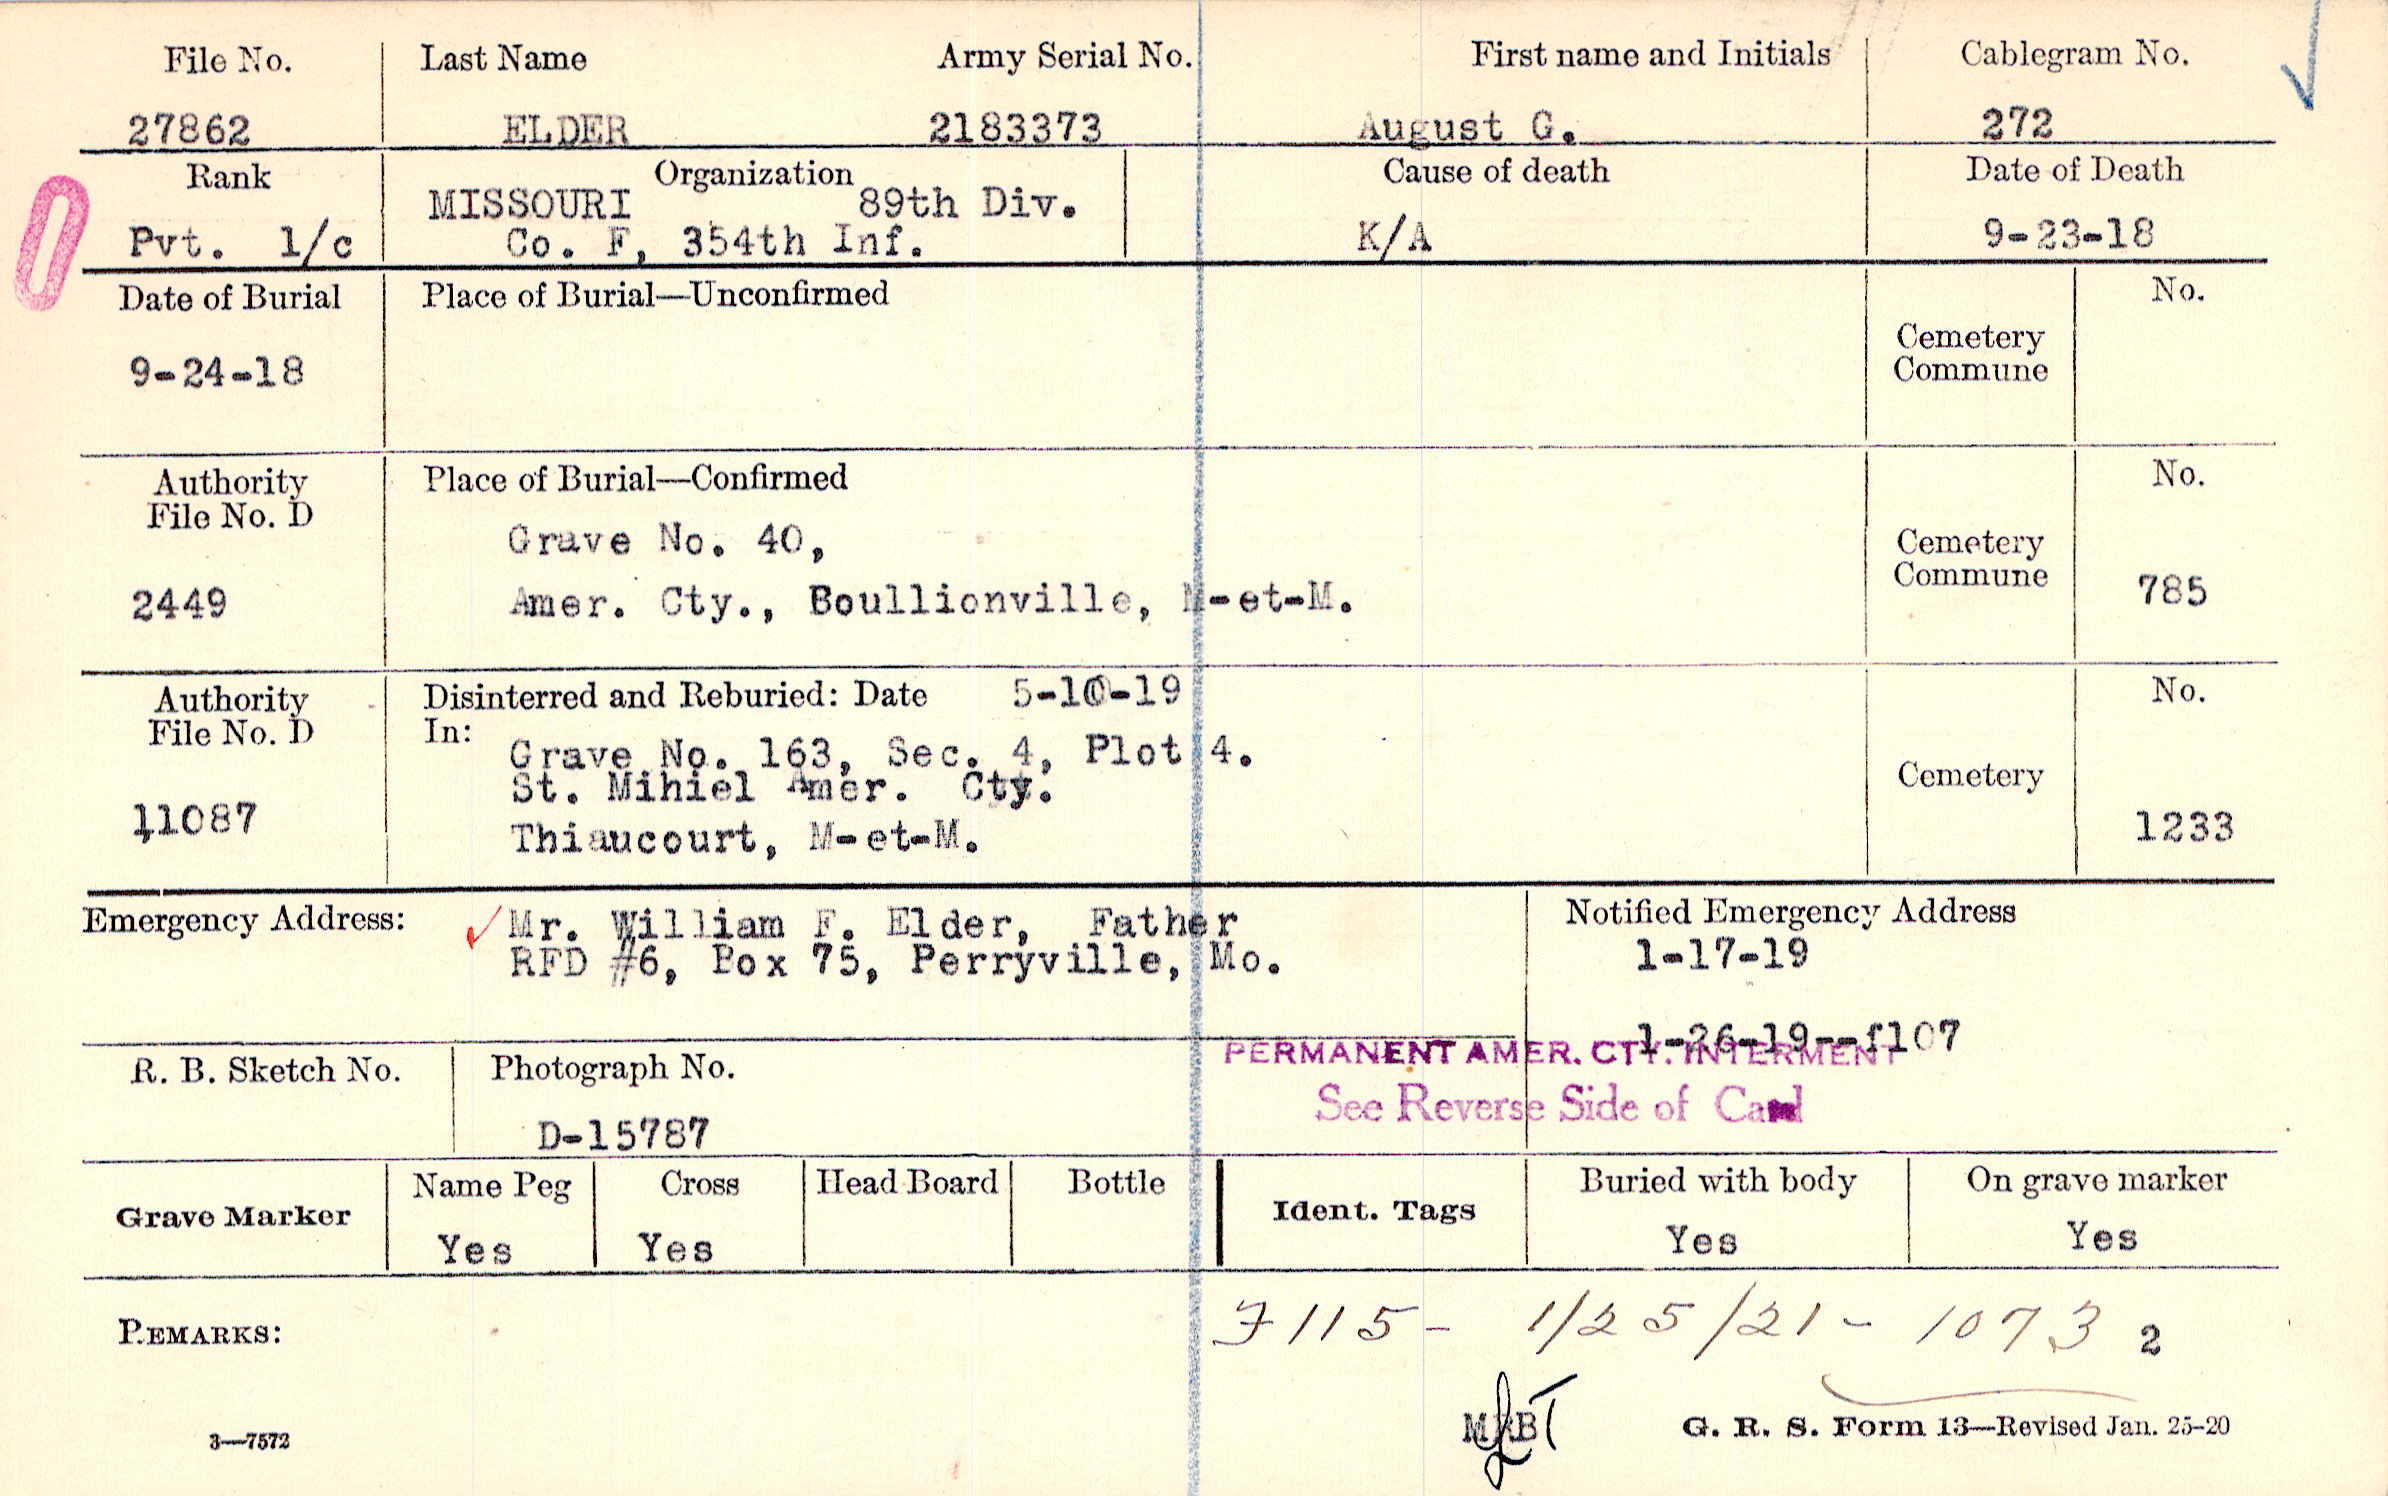 File No. Last Name Army Serial No. First name and Initials Cablegram No.
27862 ELDER 2183373 August G. 272
Rank Organization Cause of death Date of Death
MISSOURI 89th Div.
Pvt. 1/c Co. F, 354th Inf. K/A 9-23-18
Date of Burial Place of Burial—Unconfirmed No.
9-24-18 Cemetery
Commune
Authority Place of Burial—Confirmed No.
File No. D
Grave No. 40, Cemetery
Commune
2449 Amer. Cty., Boullionville, M-et-M. 785
Authority Disinterred and Reburied: Date 5-10-19 No.
File No. D In:
Grave No. 163, Sec. 4, Plot 4.
St. Mihiel Amer. Cty. Cemetery
11087 Thiaucourt, M-et-M. 1233
Emergency Address: Mr. William F. Elder, Father Notified Emergency Address
RFD #6, Box 75, Perryville, Mo. 1-17-19
1-26-19--f107
PERMANENT AMER. CTY. INTERMENT
R. B. Sketch No. Photograph No. See Reverse Side of Card
D-15787
Grave Marker Name Peg Cross Head Board Bottle Ident. Tags Buried with body On grave marker
Yes Yes Yes Yes
REMARKS: F115- 1/25/21- 1073 2
3—7572 G. R. S. Form 13—Revised Jan. 25-20